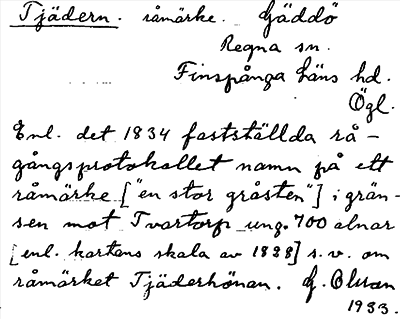 Tjädern. råmärke. Gäddö
Regna sn.
Finspånga läns hd.
Ögl.
Enl. det 1834 fastställda rå-
gångsprotokollet namn på ett
råmärke ["en stor gråsten"] i grän-
sen mot Tvartorp ung. 700 alnar
[enl. kartans skala av 1828] s.v. om
råmärket Tjäderhönan. G. Olson
1933.